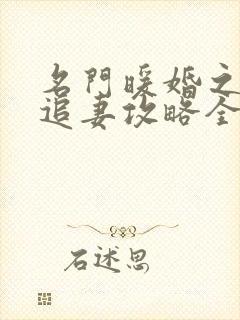 名門暖婚之
追妻攻略全
石述思